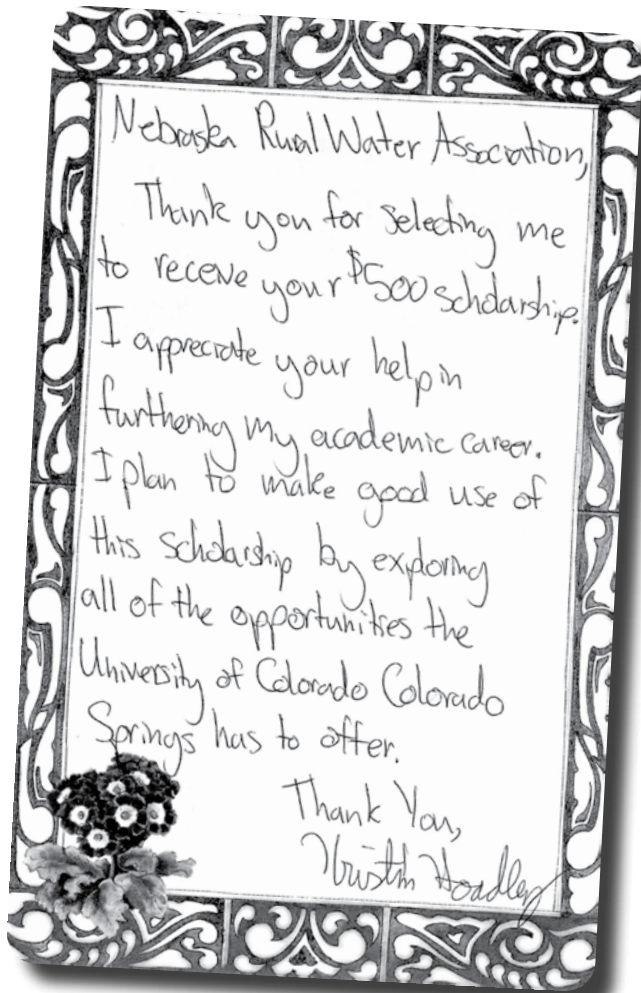 Nebraska Rural Water Association,
Thank you for selecting me
to receive your $500 scholarship.
I appreciate your help in
furthering my academic career.
I plan to make good use of
this scholarship by exploring
all of the opportunities the
University of Colorado Colorado
Springs has to offer.
Thank You,
Hoadley